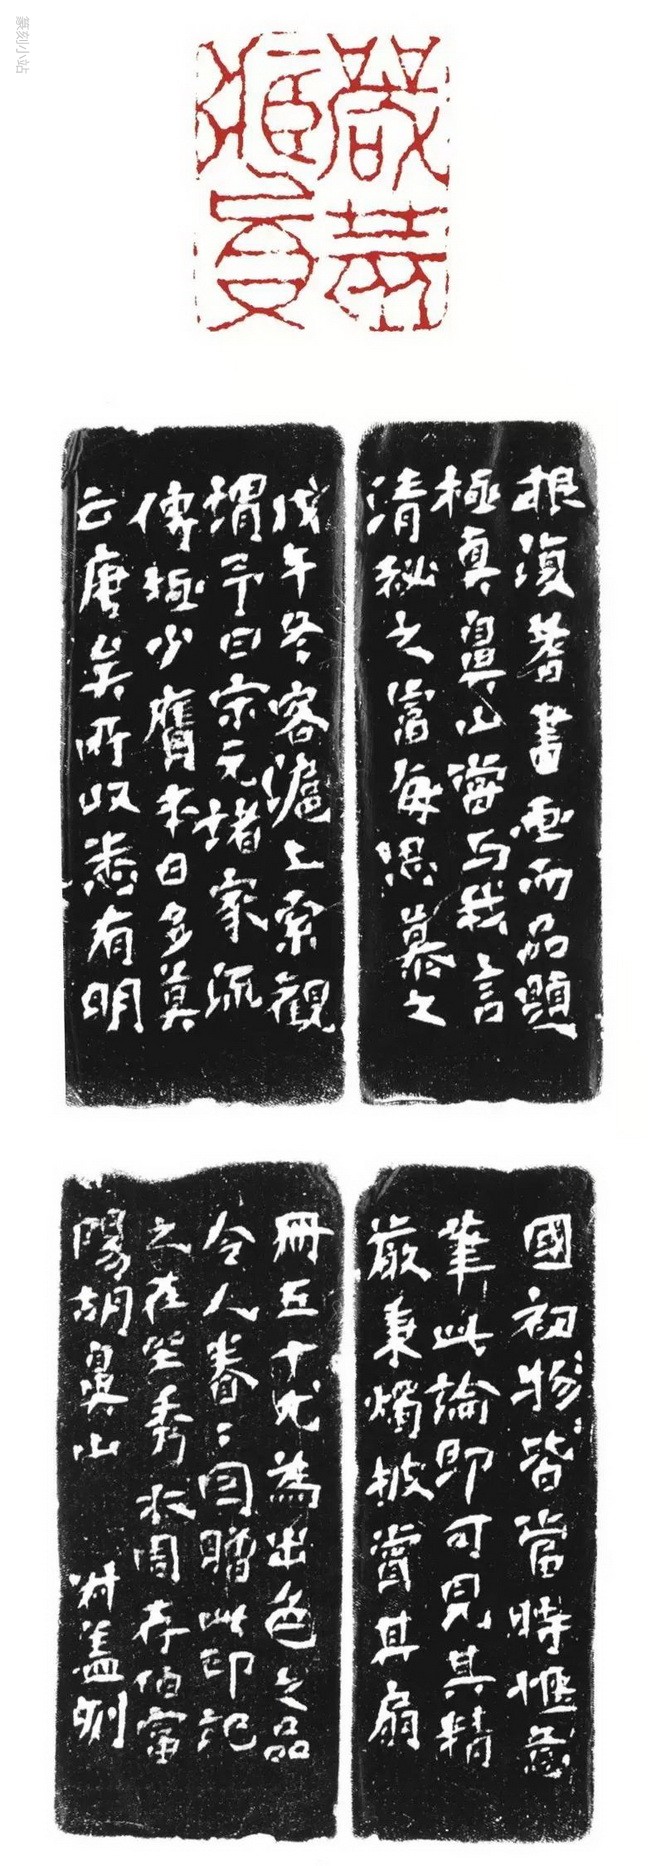 篆刻小站
根復耆書畫而品題
極真鼻山嘗与我言
清秘之富每思慕之
戊午冬客滬上索觀
謂予曰宋元諸家流
傳極少贋本日多莫
云唐矣所收悉有明
國初物皆當時愜意
筆此論即可見其精
嚴秉燭披賞其扇
冊五十尤為出色之品
令人眷〻因贈此印記
之在坐秀水周存伯富
陽胡鼻山 叔蓋刻